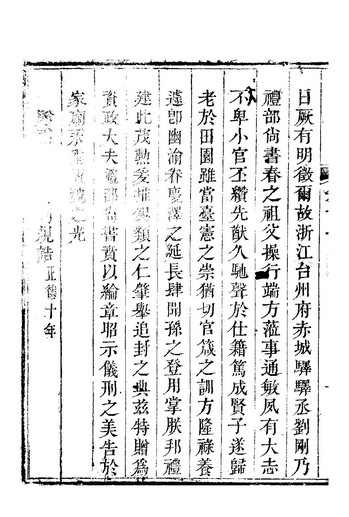 日厥有明徵爾故浙江台州府赤城驛驛丞劉剛乃
禮部尚書春之祖父操行端方蒞事通敏夙有大志
不卑小官丕纘先猷久馳聲於仕籍篤成賢子遂歸
老於田園雖當臺憲之崇猶切官箴之訓方隆祿養
遽卽幽淪眷慶澤之延長肆聞孫之登用掌朕邦禮
建此茂勲爰推錫類之仁肇舉追封之典茲特贈爲
資政大夫禮部尚書賁以綸章昭示儀刑之美告於
家廟永 之光
誥正德十年